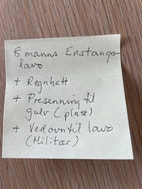 8. manns Enstangs-
lavo
+ Regnhatt
+ Presenning til
gulv (plast)
+ Vedovn til lavo
(Militær)